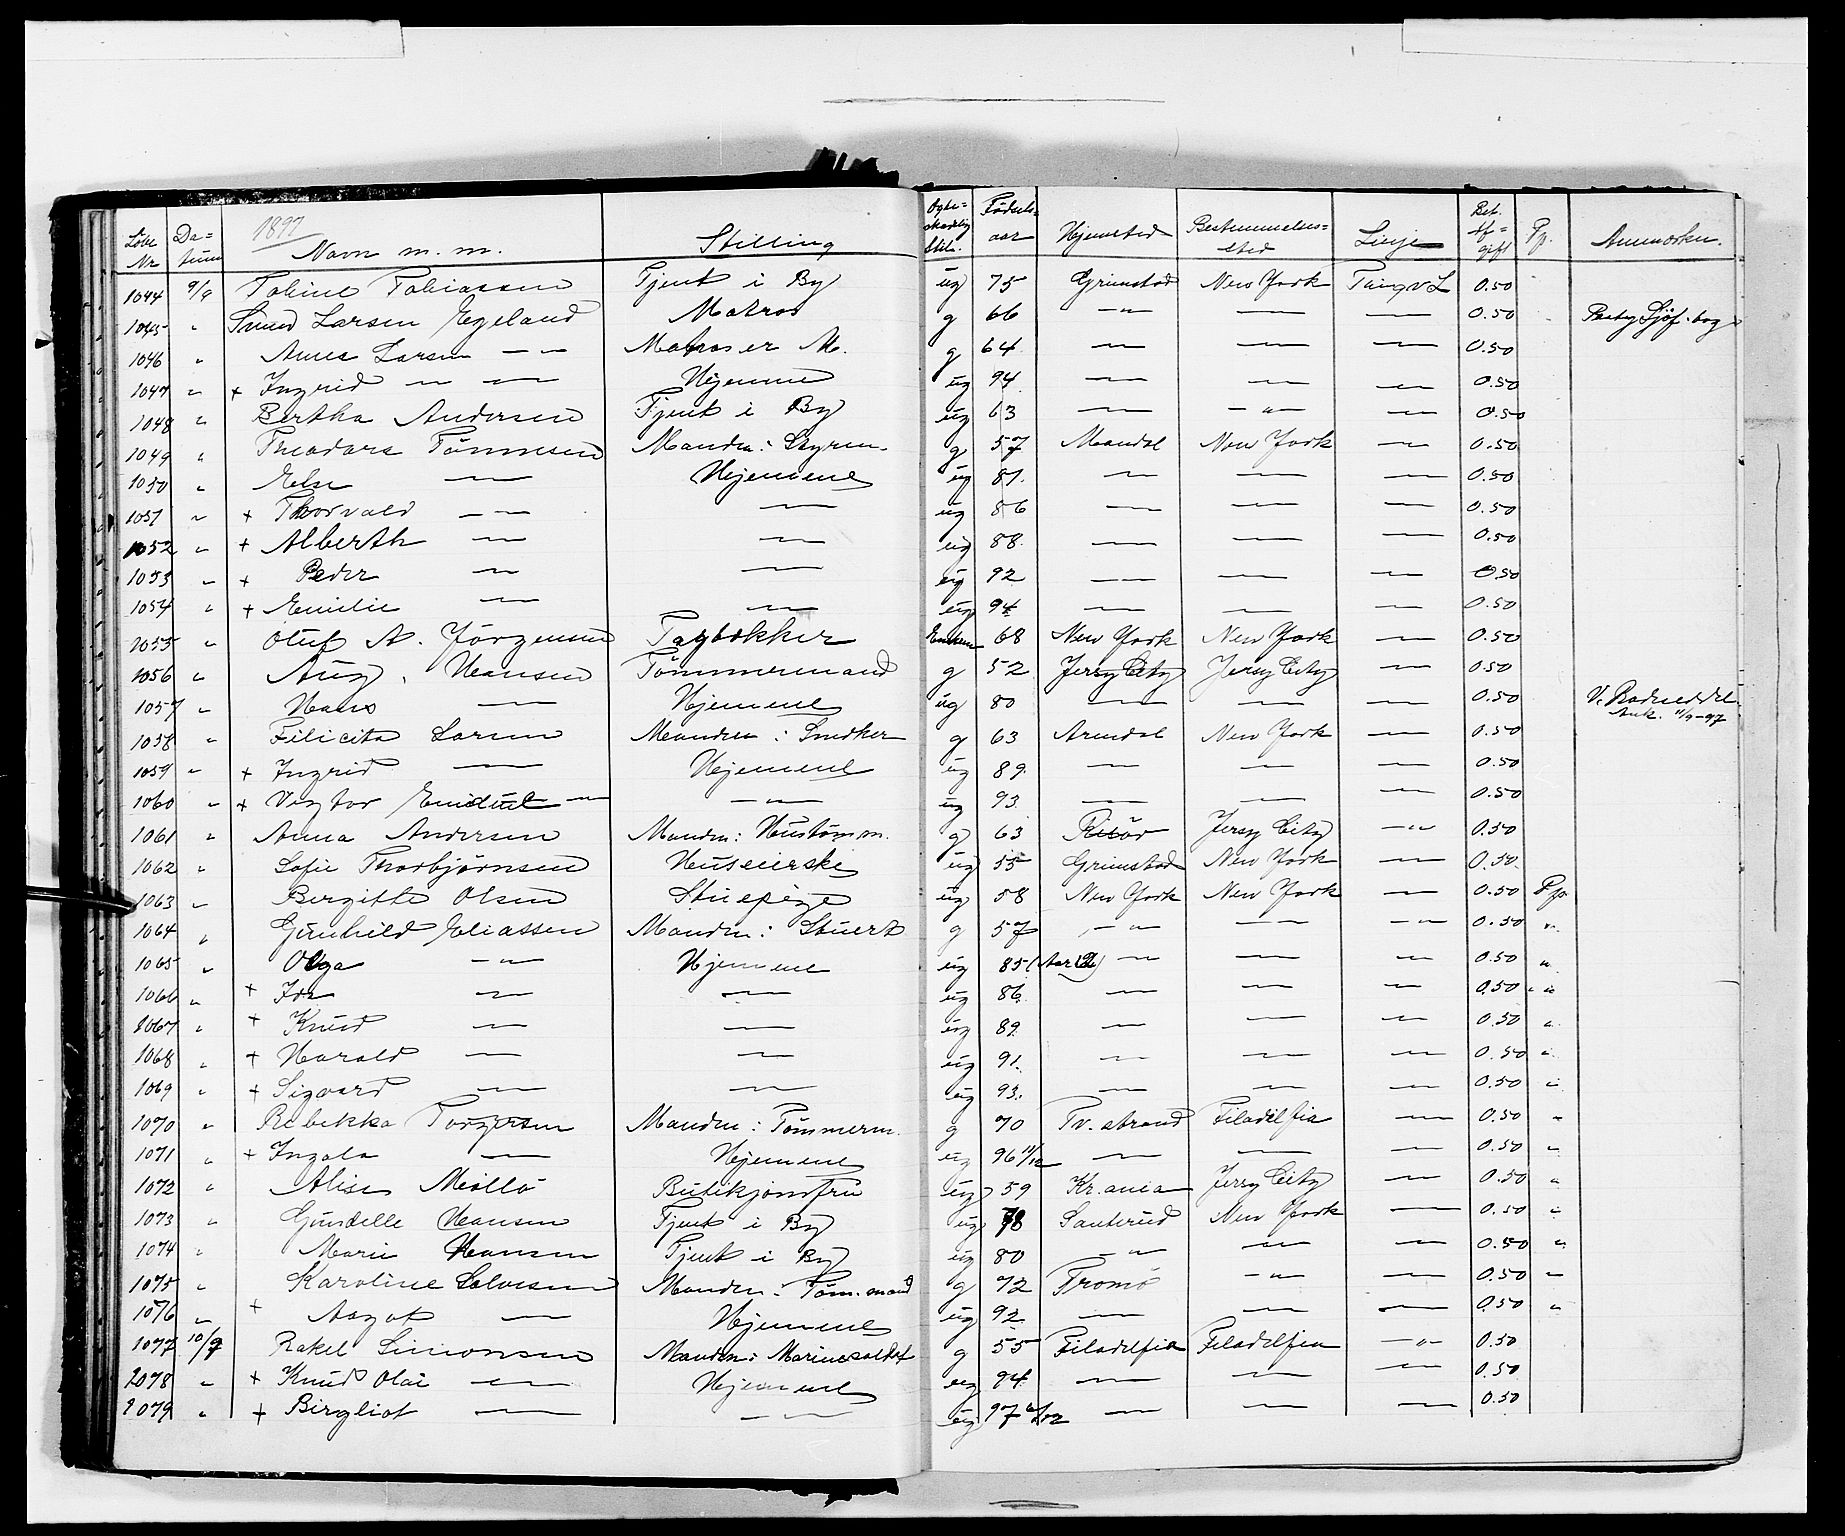 1897
Løbe Nr Da= tum Navn m. m. Stilling Ægte= skabelig Stil. Fødsels= aar Hjemsted Bestemmelses= sted Linje Bet. Af= gift Pp. Anmerkn.
1044 9/9 Tobine Tobiassen Tjent i By ug 75 Grimstad New York Tingv L 0.50
1045 " Svend Larsen Egeland Matros g 66 — " — — — 0.50
1046 " Anna Larsen — " — Matroser M. g 64 — — — 0.50
1047 " + Ingrid — " — — Hjemme ug 94 — — — 0.50
1048 " Bertha Andersen Tjent i By ug 63 — — " — — 0.50
1049 " Theodora Tønnesen Manden: Styrm. g 57 Mandal New York — 0.50
1050 " Else — Hjemme ug 81 — — — 0.50
1051 " + Thorvald — " — — ug 86 — — — 0.50
1052 " + Alberth — — ug 88 — — — 0.50
1053 " + Peder — — ug 92 — — — 0.50
1054 " + Emilie — — ug 94 — — — 0.50
1055 " Oluf A. Jörgensen Tagtækker 68 New York New York — 0.50
1056 " Aug. Hansen Tömmermand g 52 Jersy City Jersy City — 0.50
1057 " Hans — Hjemme ug 80 — — — 0.50 Ank. 11/9-97
1058 " Filicita Larsen Manden: Snedker g 63 Arendal New York — 0.50
1059 " + Ingrid — Hjemme ug 89 — — — 0.50
1060 " + Victor Emanuel — " — — " — ug 93 — — — 0.50
1061 " Anna Andersen Manden: Hustömm. g 63 Risör Jersy City — " — 0.50
1062 " Sofie Thorbjørnsen Huseierske ug 55 Grimstad New York — 0.50
1063 " Bergitte Olsen Stuepige ug 58 New York New York — 0.50 Pp.
1064 " Gunhild Eliassen Manden: Stuert g 57 — " — — — " — 0.50 "
1065 " Olga — " — Hjemme ug 85 (Aar 12) — — — 0.50 "
1066 " + Ida — — ug 86 — — — 0.50 "
1067 " + Knud — — ug 89 — — — 0.50 "
1068 " + Harald — — ug 91 — — — 0.50 "
1069 " + Sigvard — — ug 93 — — — 0.50 "
1070 " Rebekka Torgersen Manden: Tömmerm. g 70 Tv. strand Filadelfia — 0.50 "
1071 " + Ingala — Hjemme ug 96 11/12 — — — 0.50 "
1072 " Alise Möllö Butikjomfru ug 59 Kr. ania Jersy City — 0.50 "
1073 " Gundelle Hansen Tjent i By ug 78 Santerud New York — 0.50 "
1074 " Marie Hansen Tjent i By ug 80 — " — — — 0.50 "
1075 " Karoline Salvesen Manden: Töm. mand g 72 Tromö — " — — 0.50 "
1076 " + Aagot — Hjemme ug 92 — — — 0.50 "
1077 10/9 Rakel Simonsen Manden: Marinesoldat g 55 Filadelfia Filadelfia — " — 0.50
1078 " + Knud Olai — Hjemme ug 94 — — — 0.50
1079 " + Birgliot — — " — ug 97 6/12 — — — 0.50